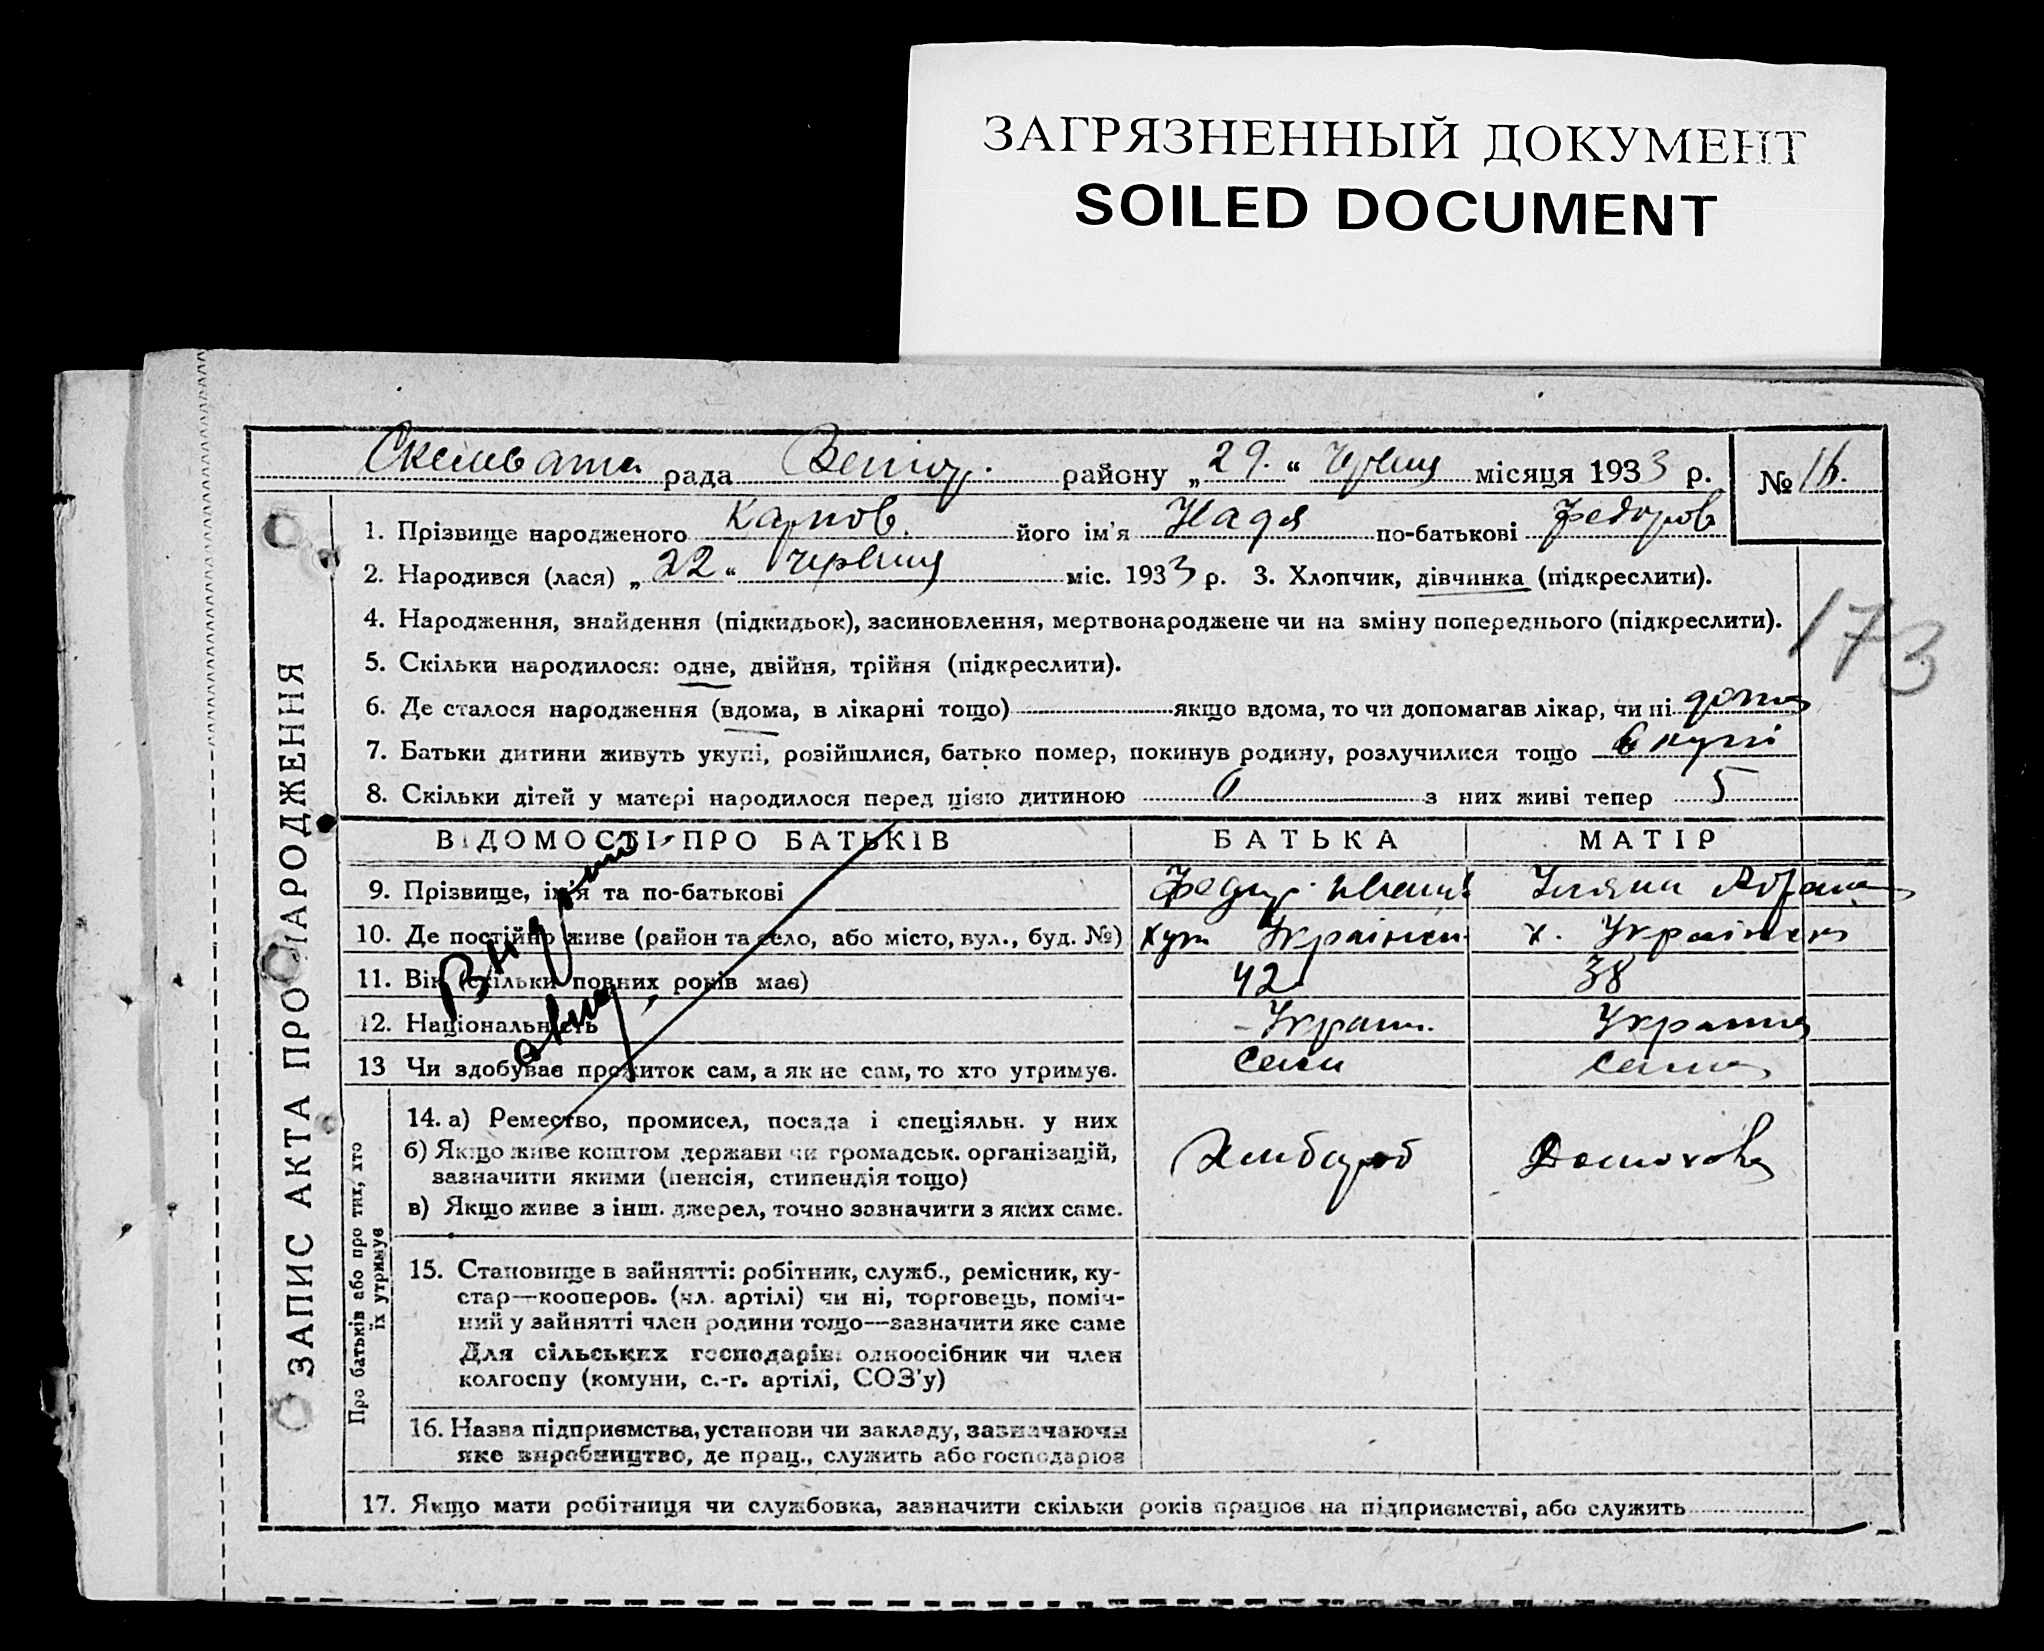 ЗАГРЯЗНЕННЫЙ ДОКУМЕНТ
SOILED DOCUMENT
рада району „29.“ червня місяця 1933 р. № 16.
1. Прізвище народженого Карпов. його ім'я Надя по-батькові Федоров
2. Народився (лася) „22“ червня міс. 1933 р. 3. Хлопчик, дівчинка (підкреслити).
4. Народження, знайдення (підкидьок), засиновлення, мертвонароджене чи на зміну попереднього (підкреслити).
173
5. Скільки народилося: одне, двійня, трійня (підкреслити).
6. Де сталося народження (вдома, в лікарні тощо) якщо вдома, то чи допомагав лікар, чи ні дома
7. Батьки дитини живуть укупі, розійшлися, батько помер, покинув родину, розлучилися тощо вкупі
8. Скільки дітей у матері народилося перед цією дитиною 6 з них живі тепер 5
ВІДОМОСТІ ПРО БАТЬКІВ БАТЬКА МАТІР
9. Прізвище, ім'я та по-батькові Федор Иванов Уляна
10. Де постійно живе (район та село, або місто, вул., буд. №) хут. Українськ х. Українськ
11. Вік (скільки повних років має) 42 38
12. Національність Украин. Украинка
13 Чи здобуває прожиток сам, а як не сам, то хто утримує. сам сама
14. а) Ремество, промисел, посада і спеціяльн. у них
б) Якщо живе коштом держави чи громадськ. організацій, Хлибороб Домохоз
зазначити якими (пенсія, стипендія тощо)
в) Якщо живе з інш. джерел, точно зазначити з яких саме.
15. Становище в зайнятті: робітник, служб., ремісник, ку-
стар—кооперов. (чл. артілі) чи ні, торговець, поміч-
ний у зайнятті член родини тощо—зазначити яке саме
Для сільських господарів: одноосібник чи член
колгоспу (комуни, с.-г. артілі, СОЗ'у)
16. Назва підприємства, установи чи закладу, зазначаючи
яке виробництво, де прац., служить або господарює
17. Якщо мати робітниця чи службовка, зазначити скільки років працює на підприємстві, або служить
ЗАПИС АКТА ПРО НАРОДЖЕННЯ
Про батьків або про тих, хто
їх утримує